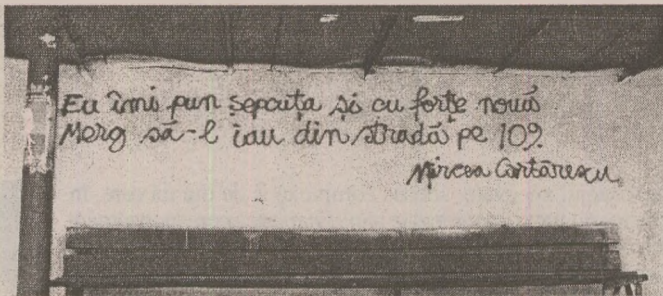 Eu îmi pun șepcuța și cu forțe nouă
Merg să-l iau din stradă pe 109.
Mircea Cărtărescu